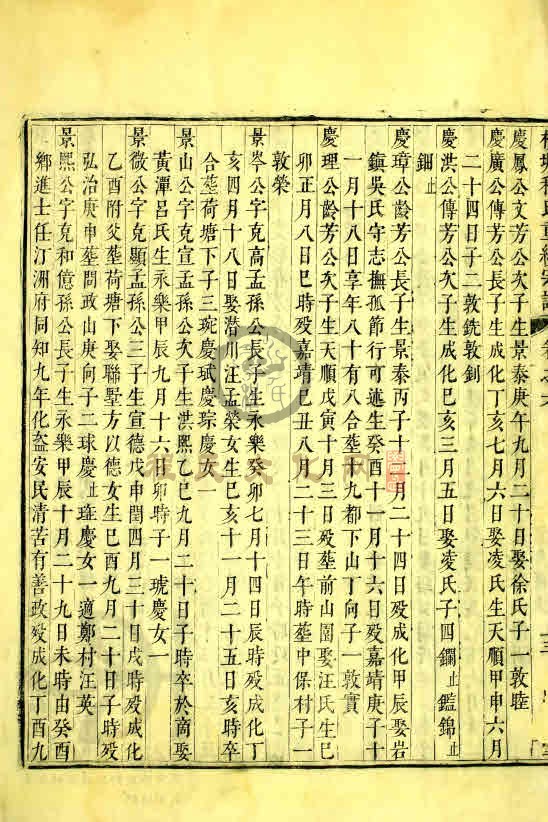 慶鳳公文芳公次子生景泰庚午九月二十日娶徐氏子一敦睦
慶廣公傳芳公長子生成化丁亥七月六日娶凌氏生天順甲申六月
二十四日子二敦銑敦釗
慶洪公傳芳公次子生成化巳亥三月五日娶凌氏子四鐗止鑑錦止
鈿止
慶璋公齡芳公長子生景泰丙子十二月二十四日殁成化甲辰娶岩
鎮吳氏守志撫孤節行可述生癸酉十一月十六日殁嘉靖庚子十
一月十八日享年八十有八合塟十九都下山丁向子一敦實
慶理公齡芳公次子生天順戊寅十月三日殁塟前山園娶汪氏生巳
卯正月八日巳時殁嘉靖巳丑八月二十三日午時塟中保村子一
敦榮
景岑公字克高孟孫公長子生永樂癸卯七月十四日辰時殁成化丁
亥四月十八日娶潛川汪孟榮女生巳亥十一月二十五日亥時卒
合塟荷塘下子三琬慶珷慶琮慶女一
景山公字克宣孟孫公次子生洪熙乙巳九月二十日子時卒於南娶
黃潭呂氏生永樂甲辰九月十六日卯時子一琥慶女一
景微公字克顯孟孫公三子生宣德戊申閏四月三十日戌時殁成化
乙酉附父塟荷塘下娶聯墅方以德女生巳酉九月二十日子時殁
弘治庚申塟問政山庚向子二球慶止珄慶女一適鄭村汪英
景熙公字克和億孫公長子生永樂甲辰十月二十九日未時由癸酉
鄉進士任汀洲府同知九年化盜安民清苦有善政殁成化丁酉九